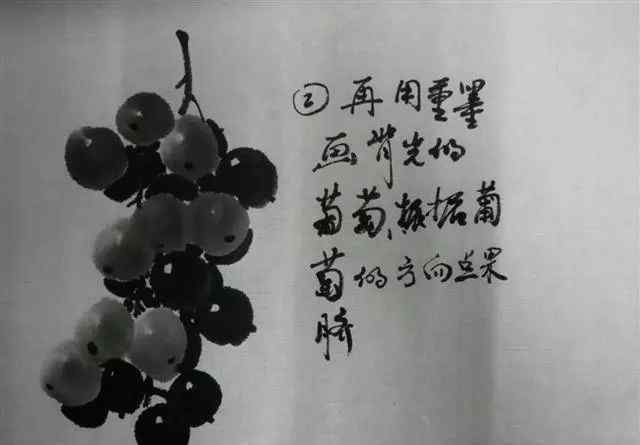 ②再用重墨
画背光的
葡萄、根据葡
萄的方向点果
脐